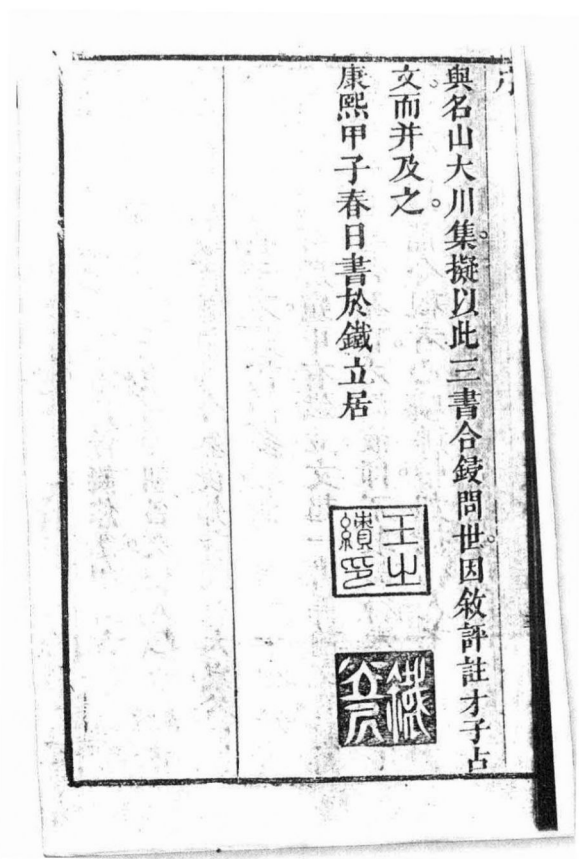 與名山大川集。擬以此三書合鋟問世。因敘評註才子古
文。而并及之。
康熙甲子春日書於鐵立居
王之
績印